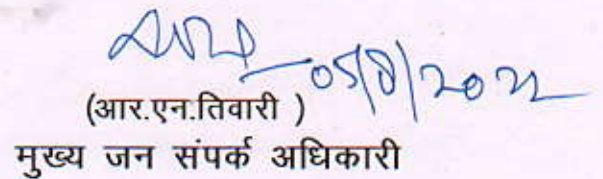 05/8/2022
(आर.एन.तिवारी )
मुख्य जन संपर्क अधिकारी